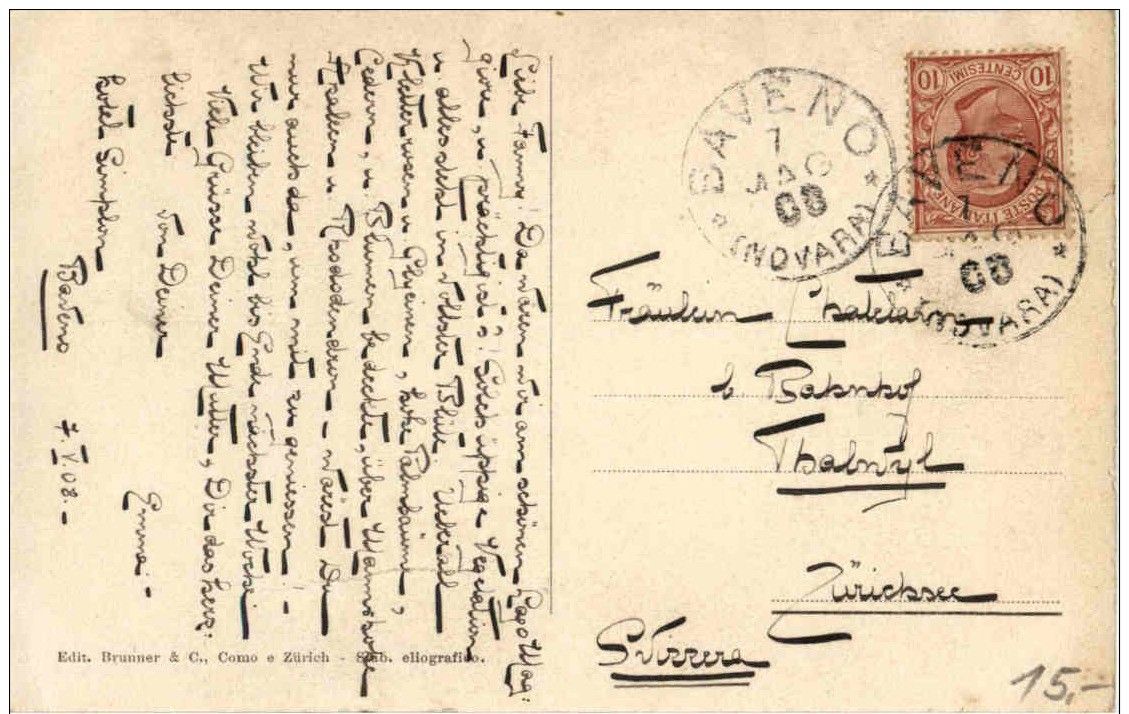 Liebe Fanny! Da wären wir am schönen Lago Mag:
giore, u. prächtig ist's! Solch üppige Vegetation
u. alles steht in vollster Blüte. Ueberall
Kletterrosen u. Glycinen, hohe Palmbäume,
Cedern, u. Blumen bedeckte, über Mannshohe
Azaleen u. Rhododendren – wärest Du
nur auch da, um mit zu geniessen! –
Wir bleiben wohl bis Ende nächster Woche.
Viele Grüsse Deiner Mutter, Dir das herz:
lichste von Deiner
Emma. –
Hotel Simplon
Baveno 7. V. 08. –
Edit. Brunner & C., Como e Zürich - Stab. eliografico.
10 CENTESIMI 10
POSTE ITALIANE
BAVENO
7
08
* (NOVARA) *
BAVENO
7
08
(NOVARA) *
Fräulein
b. Bahnhof
Thalwyl
Zürichsee
Svizzera
15,-